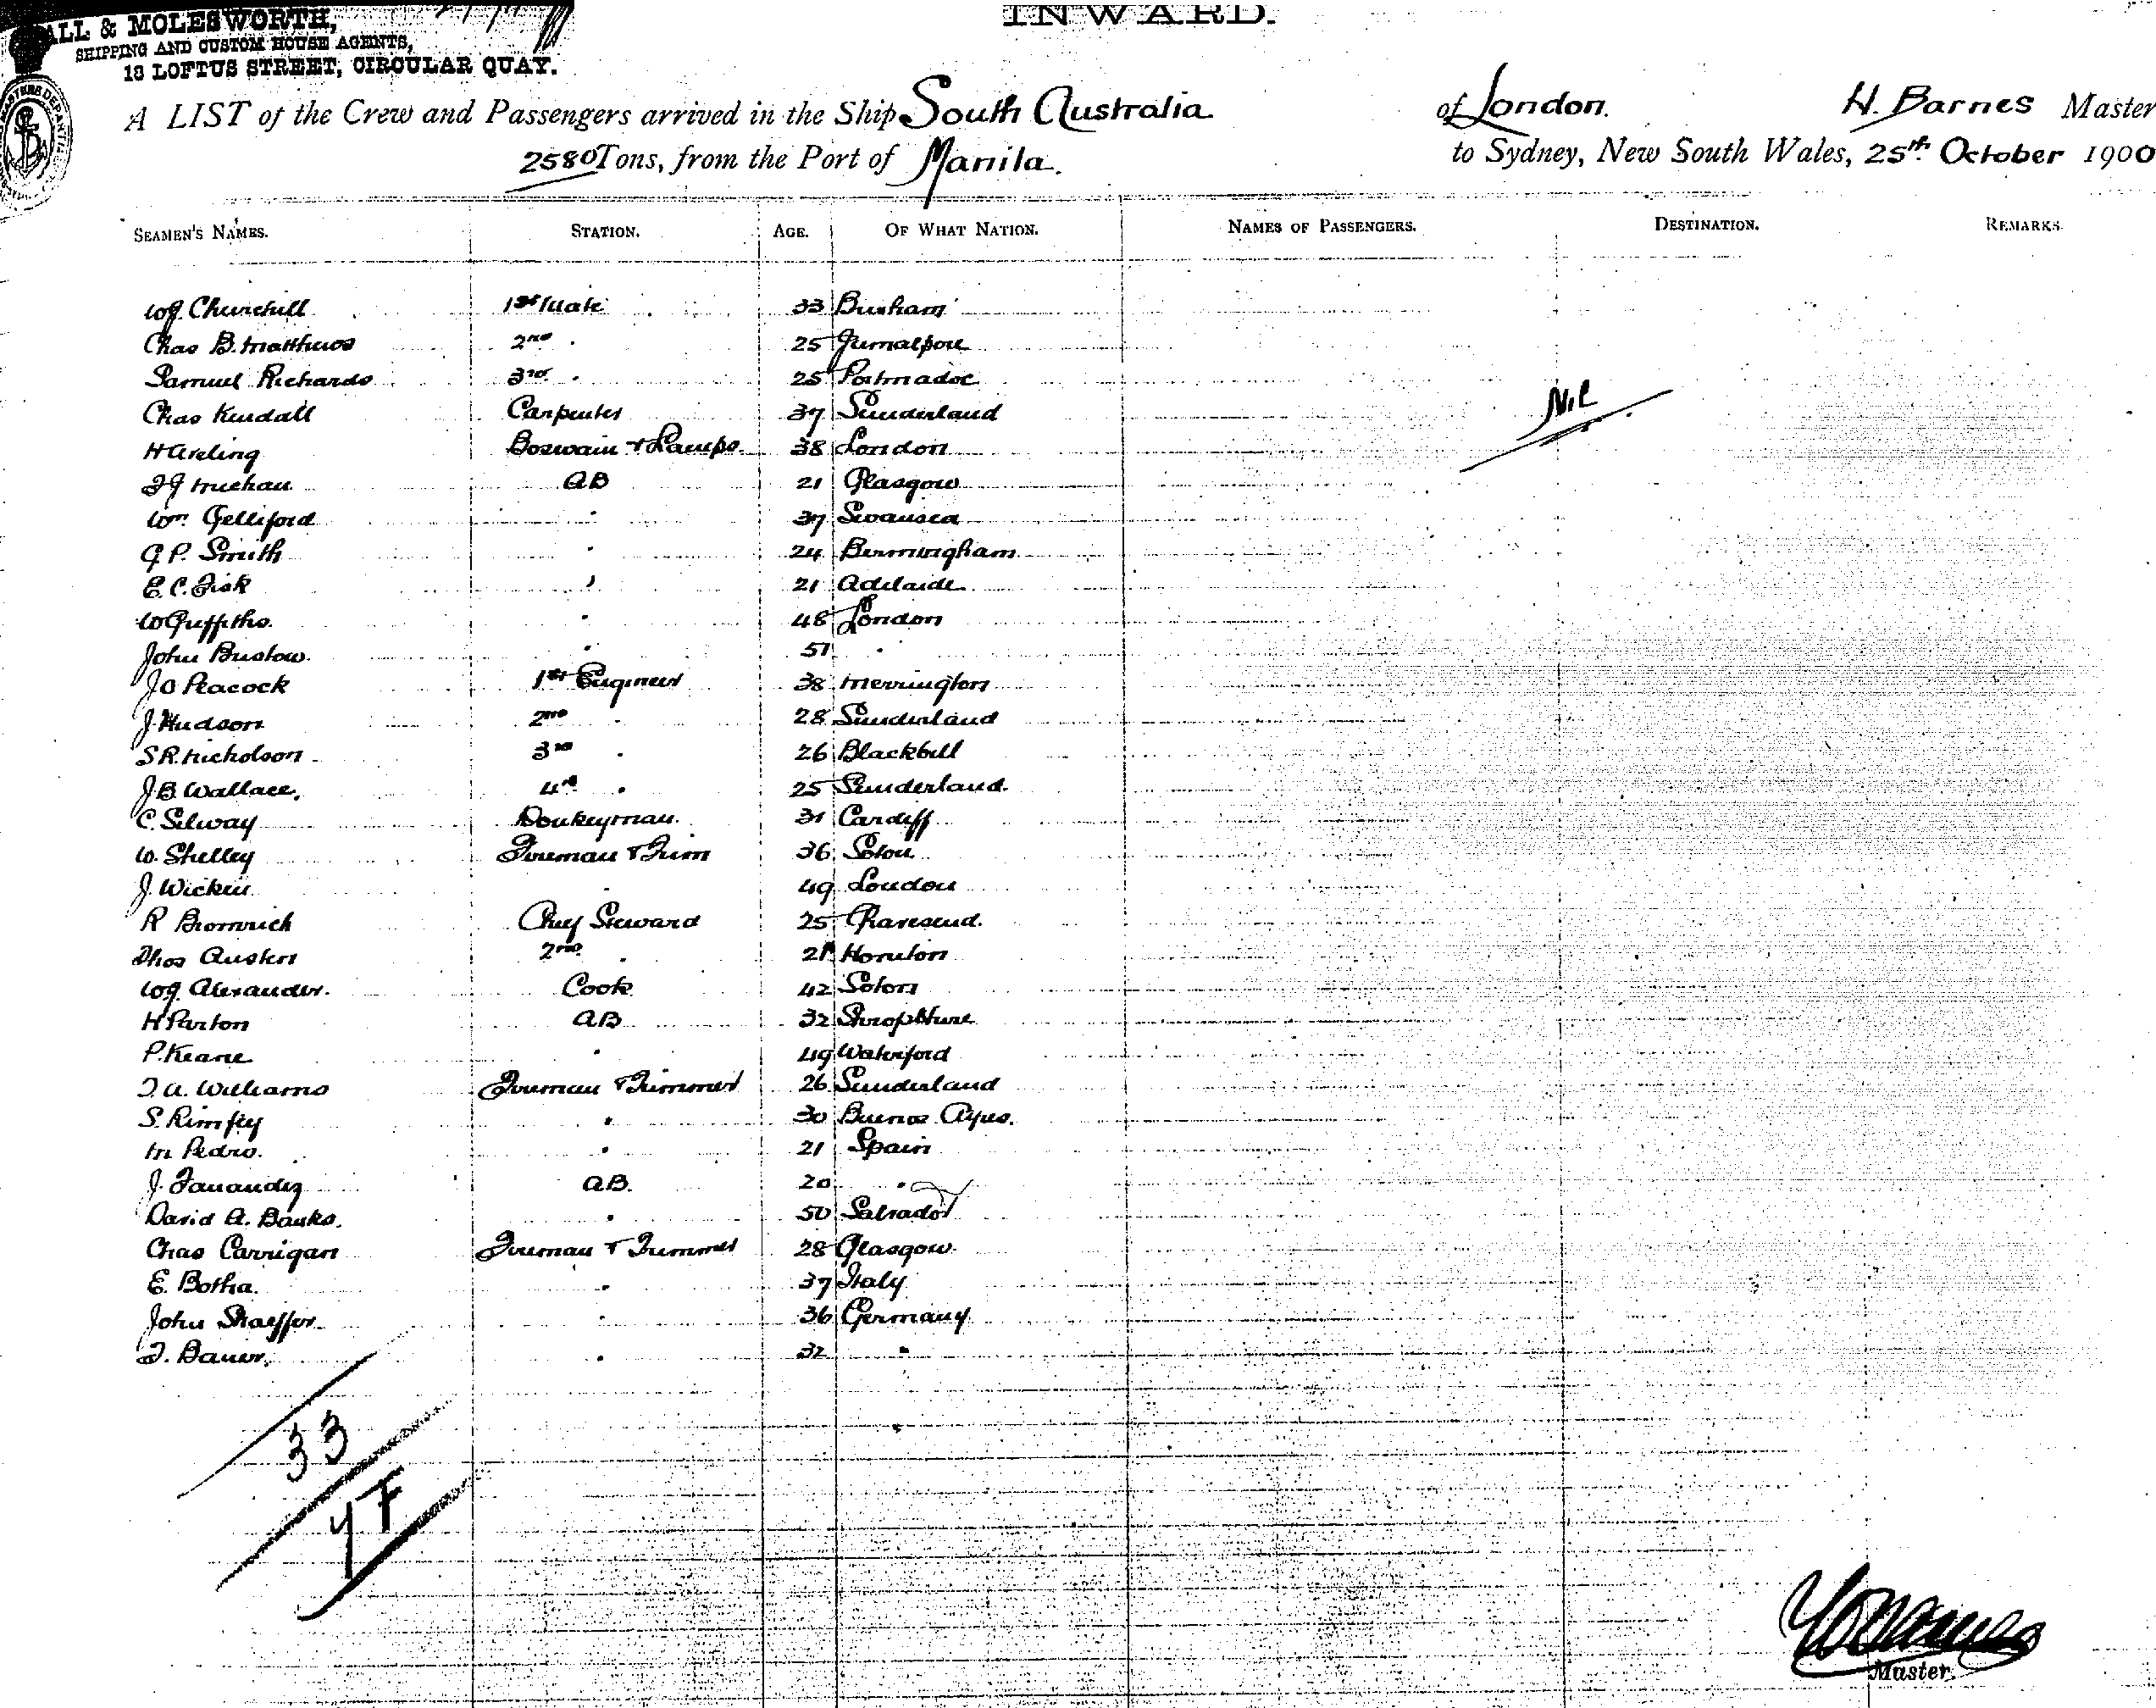 INWARD.
ALL & MOLESWORTH,
SHIPPING AND CUSTOM HOUSE AGENTS,
13 LOFTUS STREET, CIRCULAR QUAY.
A LIST of the Crew and Passengers arrived in the Ship South Australia of London. H. Barnes Master
2580 Tons, from the Port of Manila. to Sydney, New South Wales, 25th October 1900
SEAMEN'S NAMES. STATION. AGE. OF WHAT NATION. NAMES OF PASSENGERS. DESTINATION. REMARKS.
WJ. Churchill 1st Mate 33
Chas B. Matthews 2nd " 25 Jumalpore
Samuel Richards 3rd " 25 Portmadoc
Nil
Chas Kendall Carpenter 37 Sunderland
H Arling Boswain + Lamps. 38 London
AB 21 Glasgow
Wm. Gelliford " 37 Swansea
G P. Smith " 24 Birmingham
E. C. Fisk " 21 Adelaide
W Griffiths. " 48 London
John Bristow. " 51 "
J O Peacock 1st Engineer 38 Merrington
J. Hudson 2nd " 28 Sunderland
S R. Nicholson 3rd " 26 Blackhill
J B Wallace. 4th " 25 Sunderland.
C. Selway Donkeyman. 31 Cardiff
W. Shelley Fireman & Trim 36 Soton
J. Wicken " 49 London
R Bromwich Chief Steward 25 Gravesend.
Thos Austen 2nd " 21 Honiton
WJ. Alexander. Cook 42 Soton
H Parton AB 32 Shropshire
P. Keane " 49 Waterford
T. A. Williams Fireman & Trimmer 26 Sunderland
S. " 30 Buenos Ayres.
M Pedro. " 21 Spain
J. Fanandez AB. 20 "
David A. Banks. " 50 Salvador
Chas Carrigan Fireman + Trimmer 28 Glasgow.
E. Botha. " 37 Italy
John Shaeffer. " 36 Germany
J. Bauer. " 32 "
33
YF
Master.